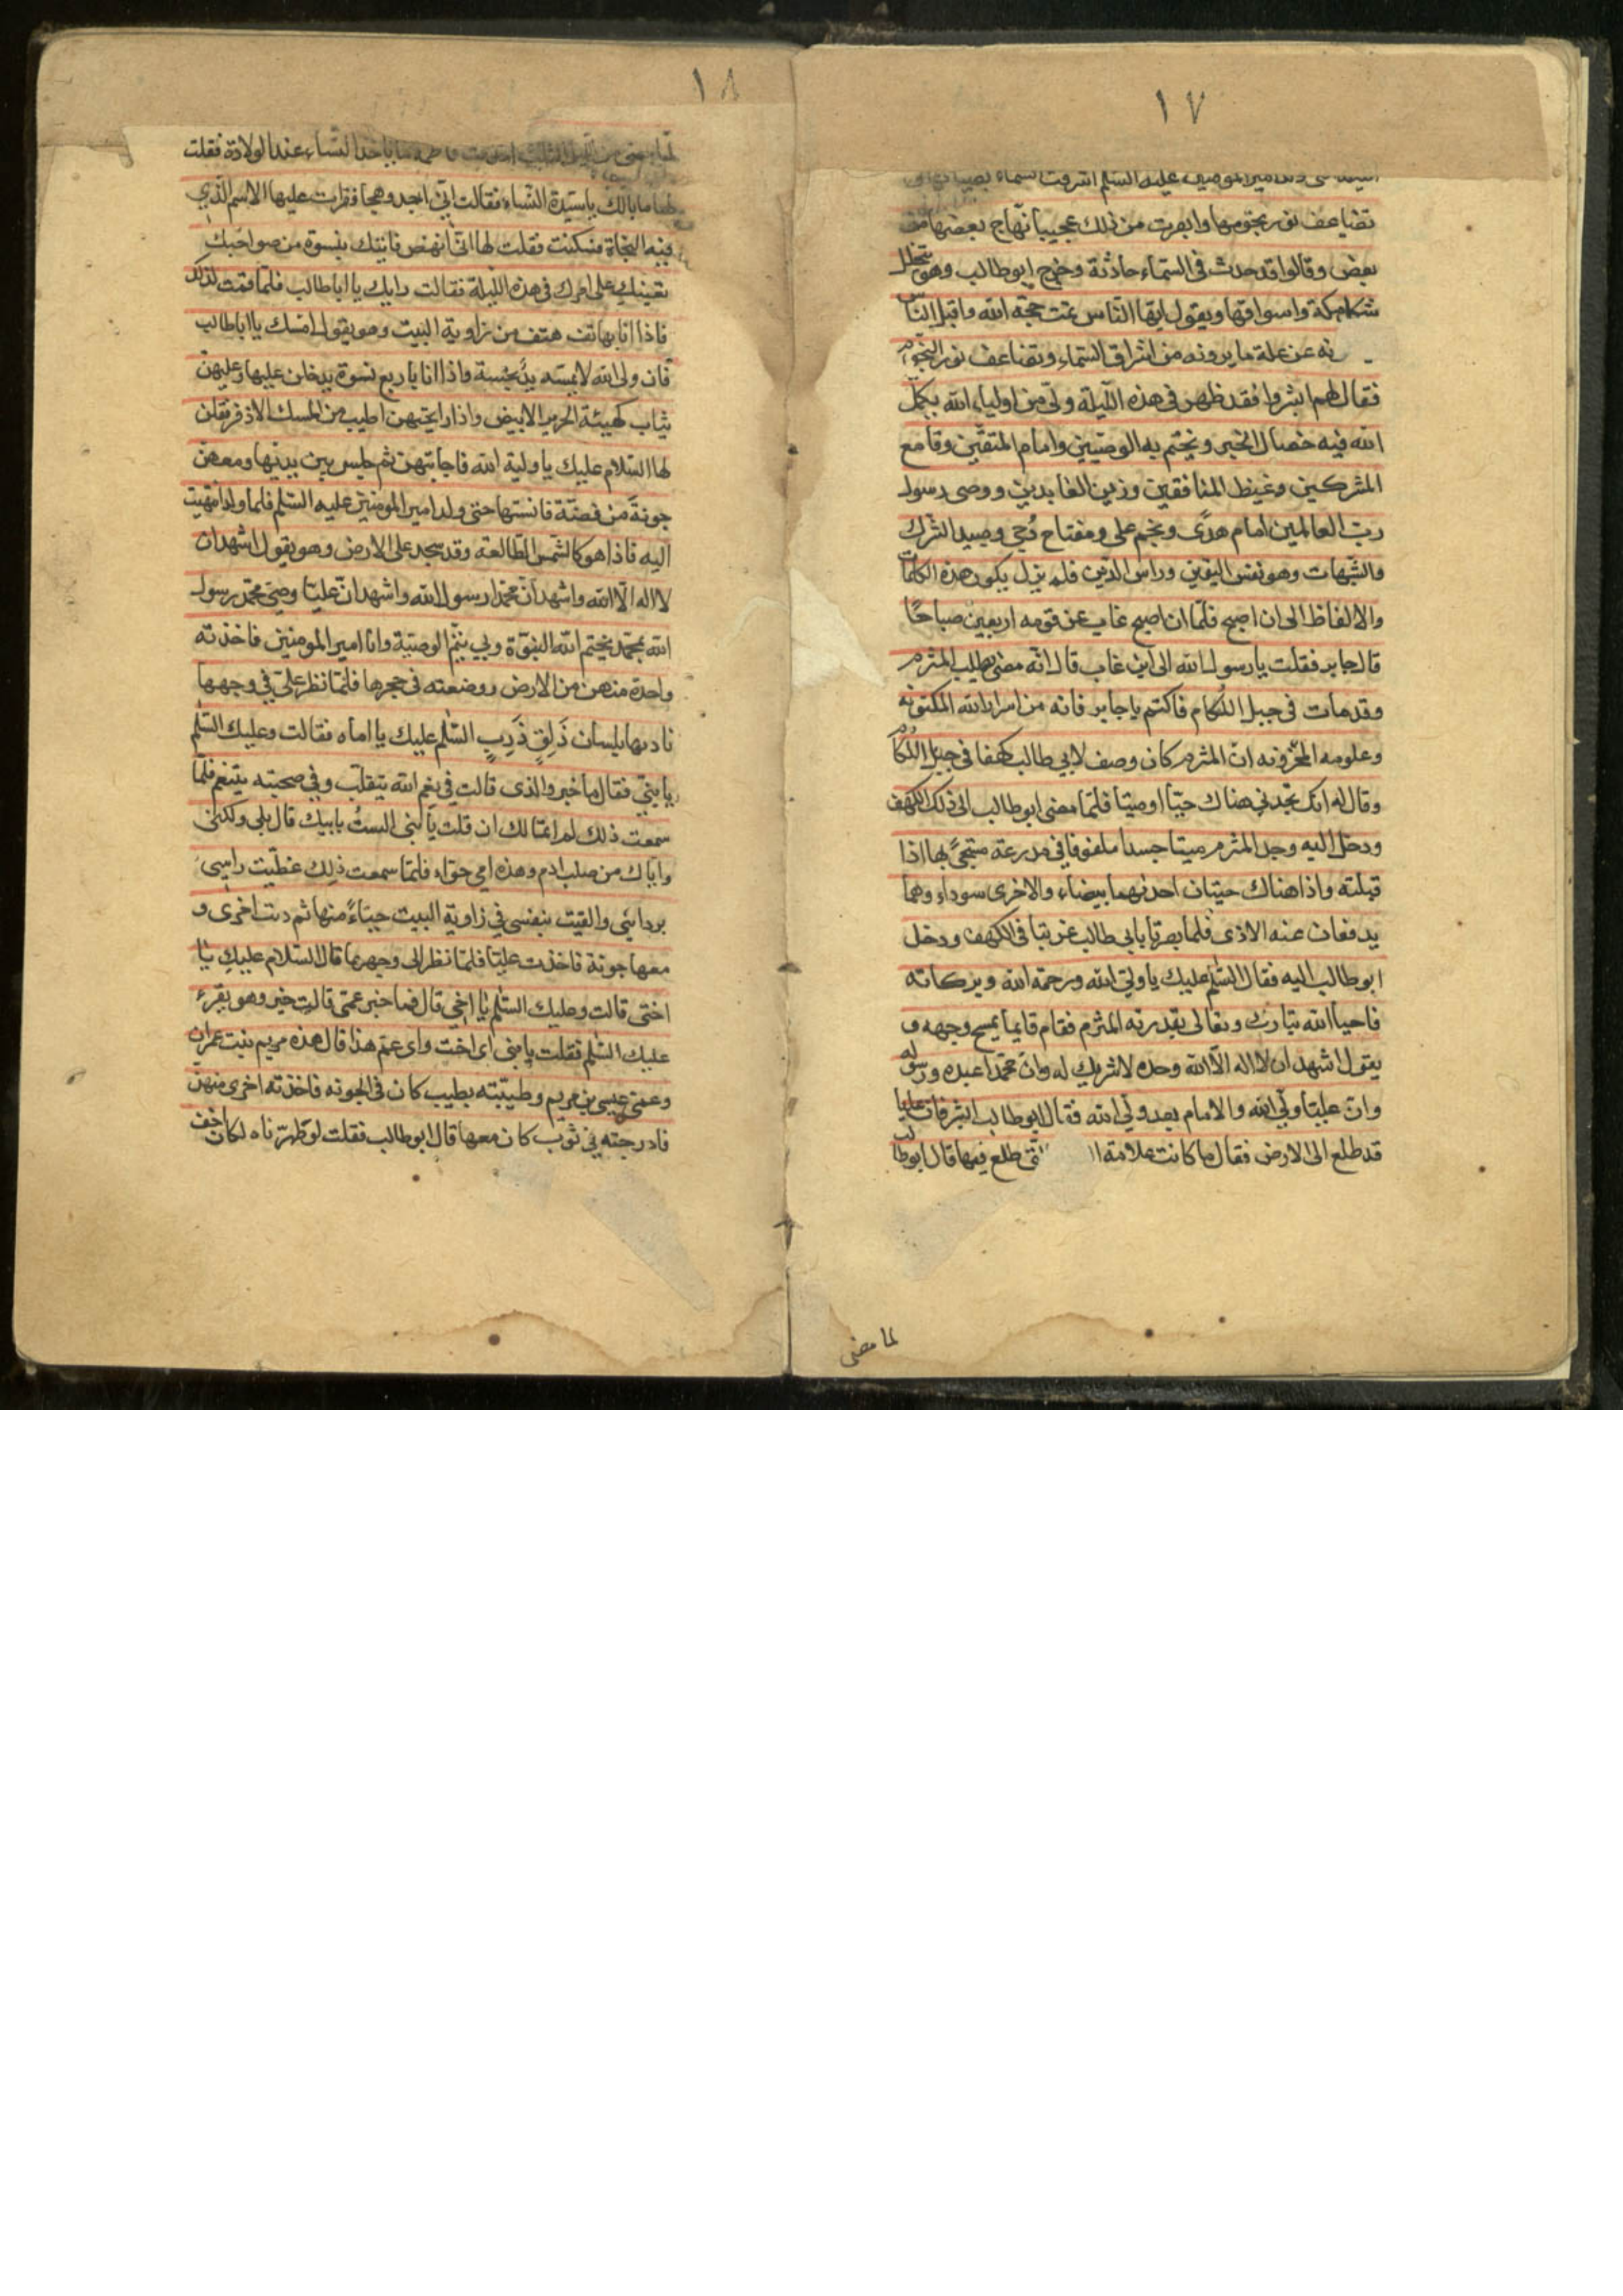 ١٧
ولد امير المومنين عليه السلم اشرقت السماء بضيائها و
تضاعف نور نجومها وابصرت من ذلك عجيبا فهاج بعضها من
بعض وقالوا قد حدث فى السماء حادثة وخرج ابوطالب وهو يتخلل
سكك مكة واسواقها ويقول ايها الناس تمت حجة الله واقبل الناس
نه عن علة ما يرونه من اشراق السماء وتضاعف نور النجوم
فقال لهم ابشروا فقد ظهر فى هذه الليلة ولى من اولياء الله يكمل
الله فيه خصال الخير ويختم به الوصيين وامام المتقين وقامع
المشركين وغيظ المنافقين وزين العابدين ووصى رسول
رب العالمين امام هدى ونجم على ومفتاح دجى ومبيد الشرك
والشبهات وهو نفس اليقين وراس الدين فلم يزل يكون هذه الكلمات
والالفاظ الى ان اصبح فلما ان اصبح غاب عن قومه اربعين صباحا
قال جابر فقلت يا رسول الله الى اين غاب قال انه مضى يطلب المثرم
وقد مات فى جبل اللكام فاكتم يا جابر فانه من اسرار الله المكنونه
وعلومه المخزونه ان المثرم كان وصف لابي طالب كهفا فى جبل اللكام
وقال له انك تجدني هناك حيا او ميتا فلما مضى ابو طالب الى ذلك الكهف
ودخل اليه وجد المثرم ميتا جسدا ملفوفا فى مدرعته مسجى بها اذا
قبلته واذا هناك حيتان احدىهما بيضاء والاخرى سوداء وهما
يدفعان عنه الاذى فلما بصرتا بابي طالب غربتا فى الكهف ودخل
ابو طالب اليه فقال السلم عليك يا ولى الله ورحمة الله وبركاته
فاحيا الله تبارك وتعالى بقدرته المثرم فقام قايما يمسح وجهه و
يقول اشهد ان لا اله الا الله وحده لا شريك له وان محمدا عبده ورسوله
وان عليا ولي الله والامام بعد ولي الله فقال ابو طالب ابشر فان عليا
قد طلع الى الارض فقال ما كانت علامة ال تى طلع فيها قال ابوطالب
لما مضى
١٨
لما مضى من الليل الثلث اخذت فاطمة ما ياخذ النساء عند الولادة فقلت
لها ما بالك يا سيدة النساء فقالت انى اجد وهجا فقرات عليها الاسم الذي
فيه النجاة فسكنت فقلت لها انى انهض فاتيك بنسوة من صواحبك
تعينك على امرك فى هذه الليلة فقالت رايك يا ابا طالب فلما قمت لذلك
فاذا انا بهاتف هتف من زاوية البيت وهو يقول امسك يا ابا طالب
فان ولى الله لا يمسه يد نجسة واذا انا باربع نسوة يدخلن عليها وعليهن
ثياب كهيئة الحرير الابيض واذا رايحتهن اطيب من المسك الاذفر فقلن
لها السلام عليك يا ولية الله فاجابتهن ثم جلس بين يديها ومعهن
جونة من فضة فانستها حتى ولد امير المومنين عليه السلم فلما ولد انتهيت
اليه فاذا هو كالشمس الطالعة وقد سجد على الارض وهو يقول اشهد ان
لا اله الا الله واشهد ان محمدا رسول الله واشهد ان عليا وصى محمد رسول
الله بمحمد يختم الله النبوة وبي يتم الوصية وانا امير المومنين فاخذته
واحدة منهن من الارض ووضعته فى حجرها فلما نظر على فى وجهها
ناديها بلسان ذلق ذرب السلم عليك يا اماه فقالت وعليك السلم
يا بني فقال ما خبر والذى قالت في نعم الله يتقلب وفى صحبته يتنعم فلما
سمعت ذلك لم اتمالك ان قلت يا بني الست بابيك قال بلى ولكنى
واياك من صلب ادم وهذه امي حواء فلما سمعت ذلك غطيت راسي
بردائي والقيت بنفسى فى زاوية البيت حياء منها ثم دنت اخرى و
معها جونة فاخذت عليا فلما نظر الى وجهها قال السلام عليك يا
اختى قالت وعليك السلم يا اخي قال فما خبر عمى قالت خير وهو يقرء
عليك السلم فقلت يا بنى اى اخت واى عم هذا قال هذه مريم بنت عمران
وعمى عيسى بن مريم وطيبته بطيب كان فى الجونه فاخذته اخرى منهن
فادرجته في ثوب كان معها قال ابو طالب فقلت لو طهرناه لكان اخف